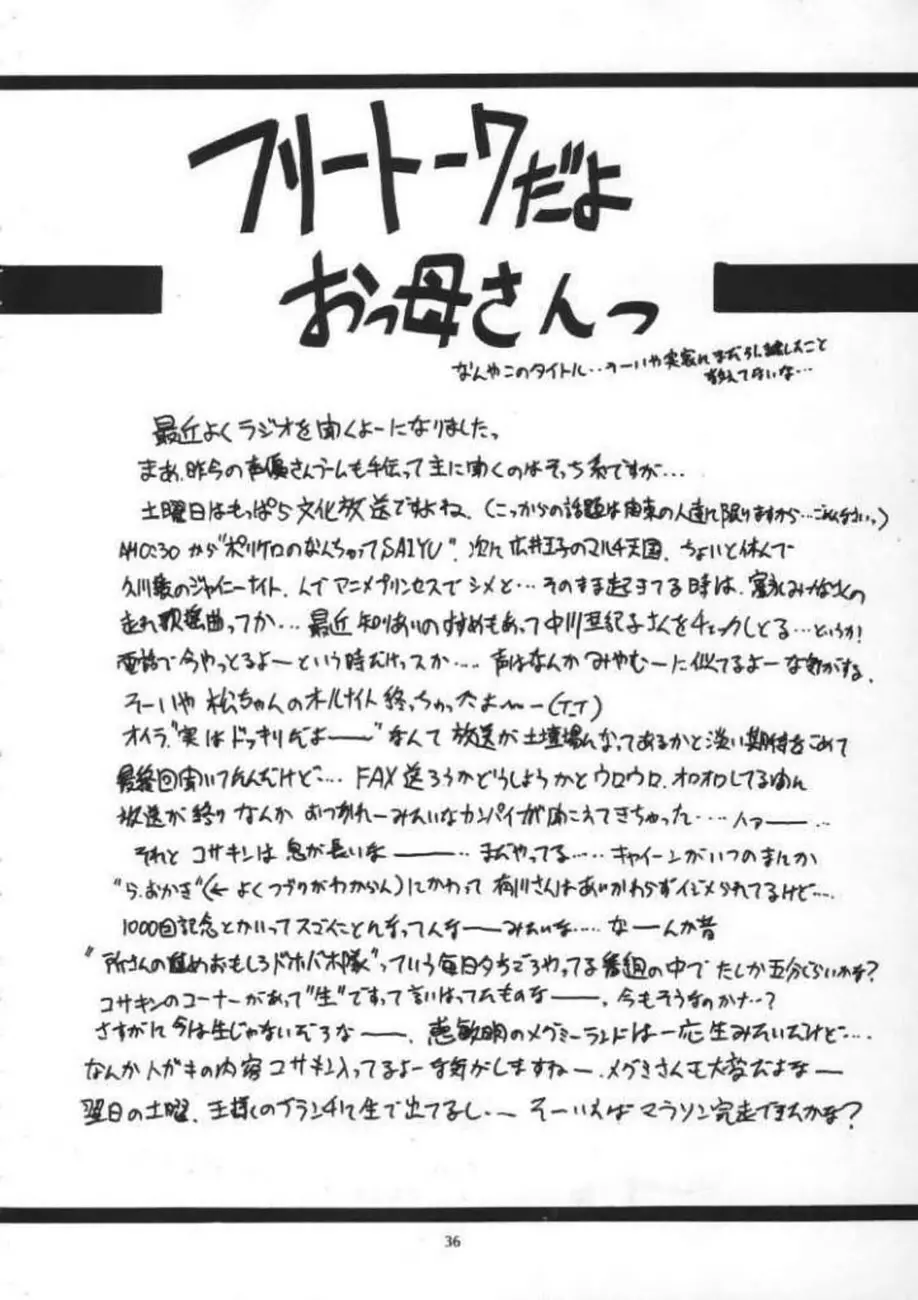 フリートークだよ
おっ母さんっ
なんやこのタイトル‥そーいや実家にまだ引っ越したこと
教えてないな…
最近よくラジオを聞くよーになりました。
まあ、昨今の声優さんブームも手伝って主に聞くのはそっち系ですが…
土曜日はもっぱら文化放送ですよね、(こっからの話題は関東の人達に限りますから…ごめんなさいっ)
AM0:30から"ポリケロのなんちゃってSAIYU"。次に広井王子のマルチ天国、ちょいと休んで
久川綾のシャイニーナイト、んでアニメプリンセスでシメと…そのまま起きてる時は、富永みーなさんの
走れ歌謡曲ってか…最近知りあいのすすめもあって中川亜紀子さんをチェックしとる…というか!
電話で今やっとるよーという時だけッスか…。声はなんかみやむーに似てるよーな気がする。
そーいや松ちゃんのオールナイト終っちゃったよ〜ー(T_T)
オイラ"実はドッキリだよー"なんて放送が土壇場になってあるかと淡い期待をこめて
最終回聞いてたんだけど…FAX送ろうかどうしようかとウロウロ、オロオロしてるめん
放送が終りなんかおつかれーみたいなカンパイが聞こえてきちゃった…ハァー…
それとコサキンは息が長いなー‥まだやってる…キャイーンがいつのまんか
"ら・おかき"(←よくつづりがわからん)にかわって有川さんはあいかわらずイジメられてるけど…
1000回記念とかいってスゴイことんなってんなーみたいな…なーんか昔
"所さんの進めおもしろドホバホ隊"っていう毎日夕ちごろやってる番組の中でたしか五分ぐらいかな?
コサキンのコーナーがあって"生"ですって言いはってたものなー。今もそうなのかナ‥?
さすがに今は生じゃないだろなー、恵敏明のメグミーランドは一応生みたいだけど…
なんかハガキの内容コサキン入ってるよーな気がしますねー、メグミさんも大変だよなー
翌日の土曜、王様のブランチに生で出てるし・〜そーいえばマラソン完走できたかな?
36